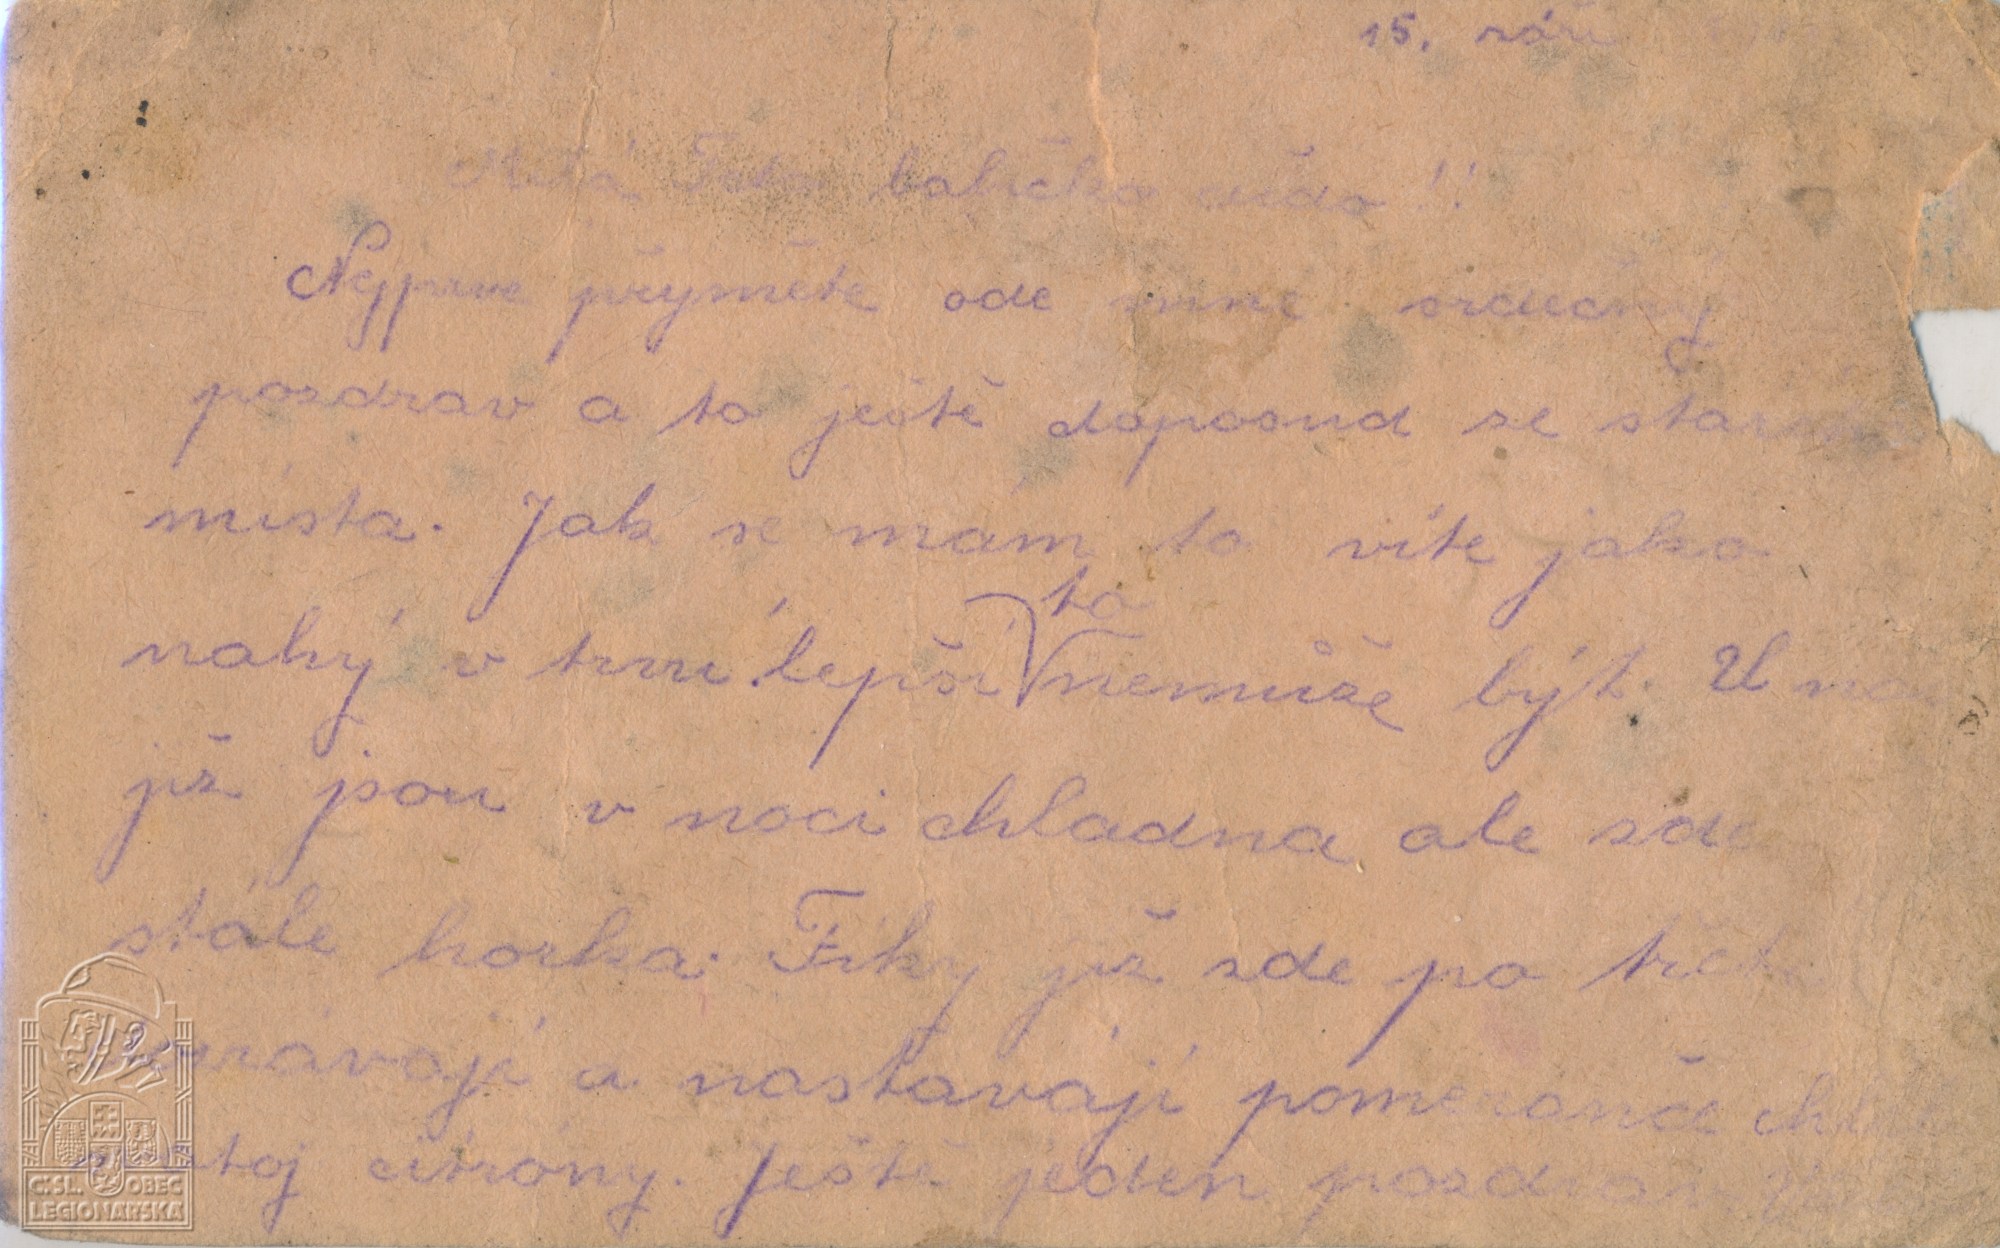 15. září
Milá babičko !!
Nejprve přijměte ode mne srdečný
pozdrav a to ještě doposud se
místa. Jak se mám to víte jako
to
nahý v trní lepší nemůže být. U
již jsou v noci chladna ale zde
stále horka. Fíky již zde po
a nastávají pomeranče
citróny. Ještě jeden pozdrav
Č.SL. OBEC
LEGIONÁŘSKÁ